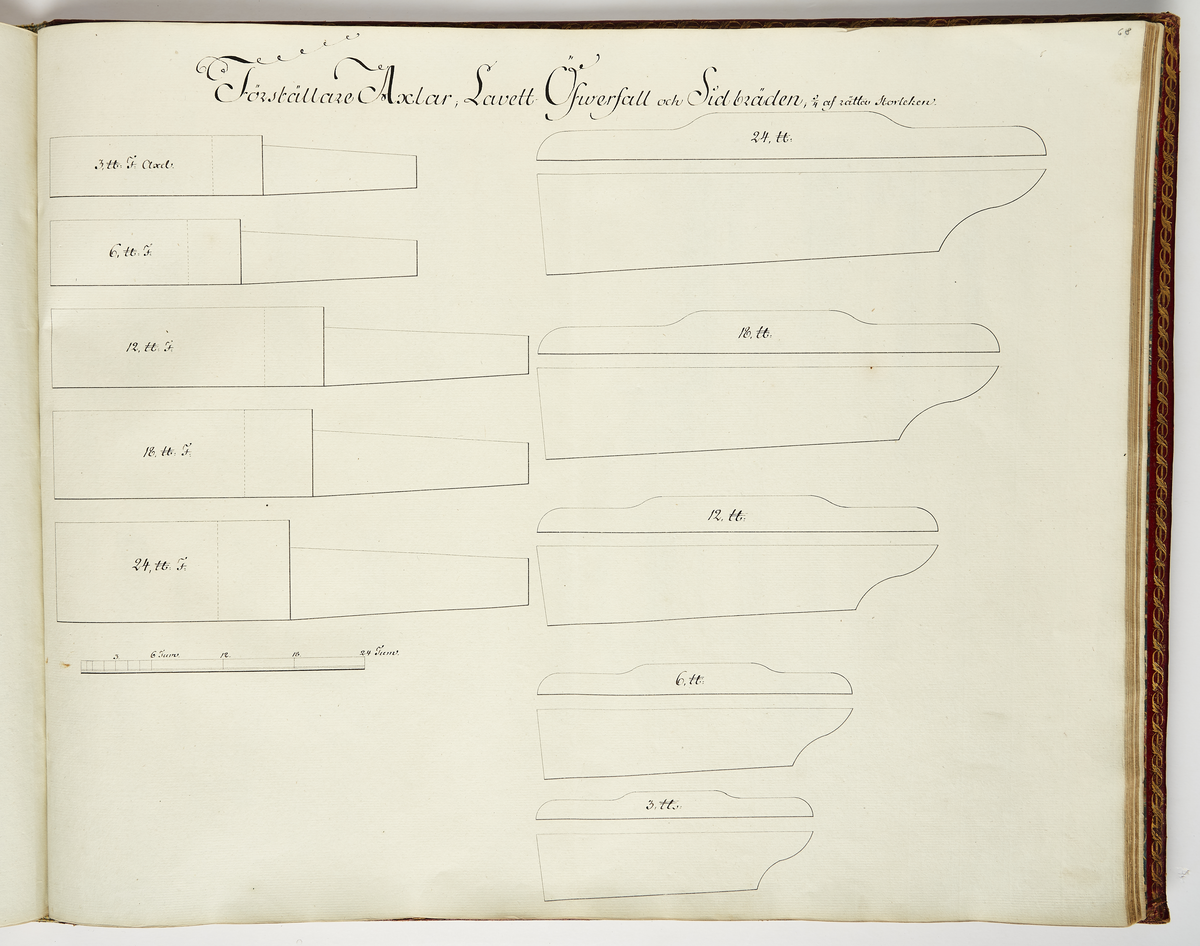 68
Förställare Axlar, Lavett Öfwerfall och Sidbräden, af rätta storleken.
3, ℔. F. Axel.
6, ℔. F.
12, ℔. F.
18, ℔. F.
24, ℔. F.
3. 6 Tum. 12. 18. 24 Tum.
24, ℔.
18, ℔.
12, ℔.
6, ℔.
3, ℔.